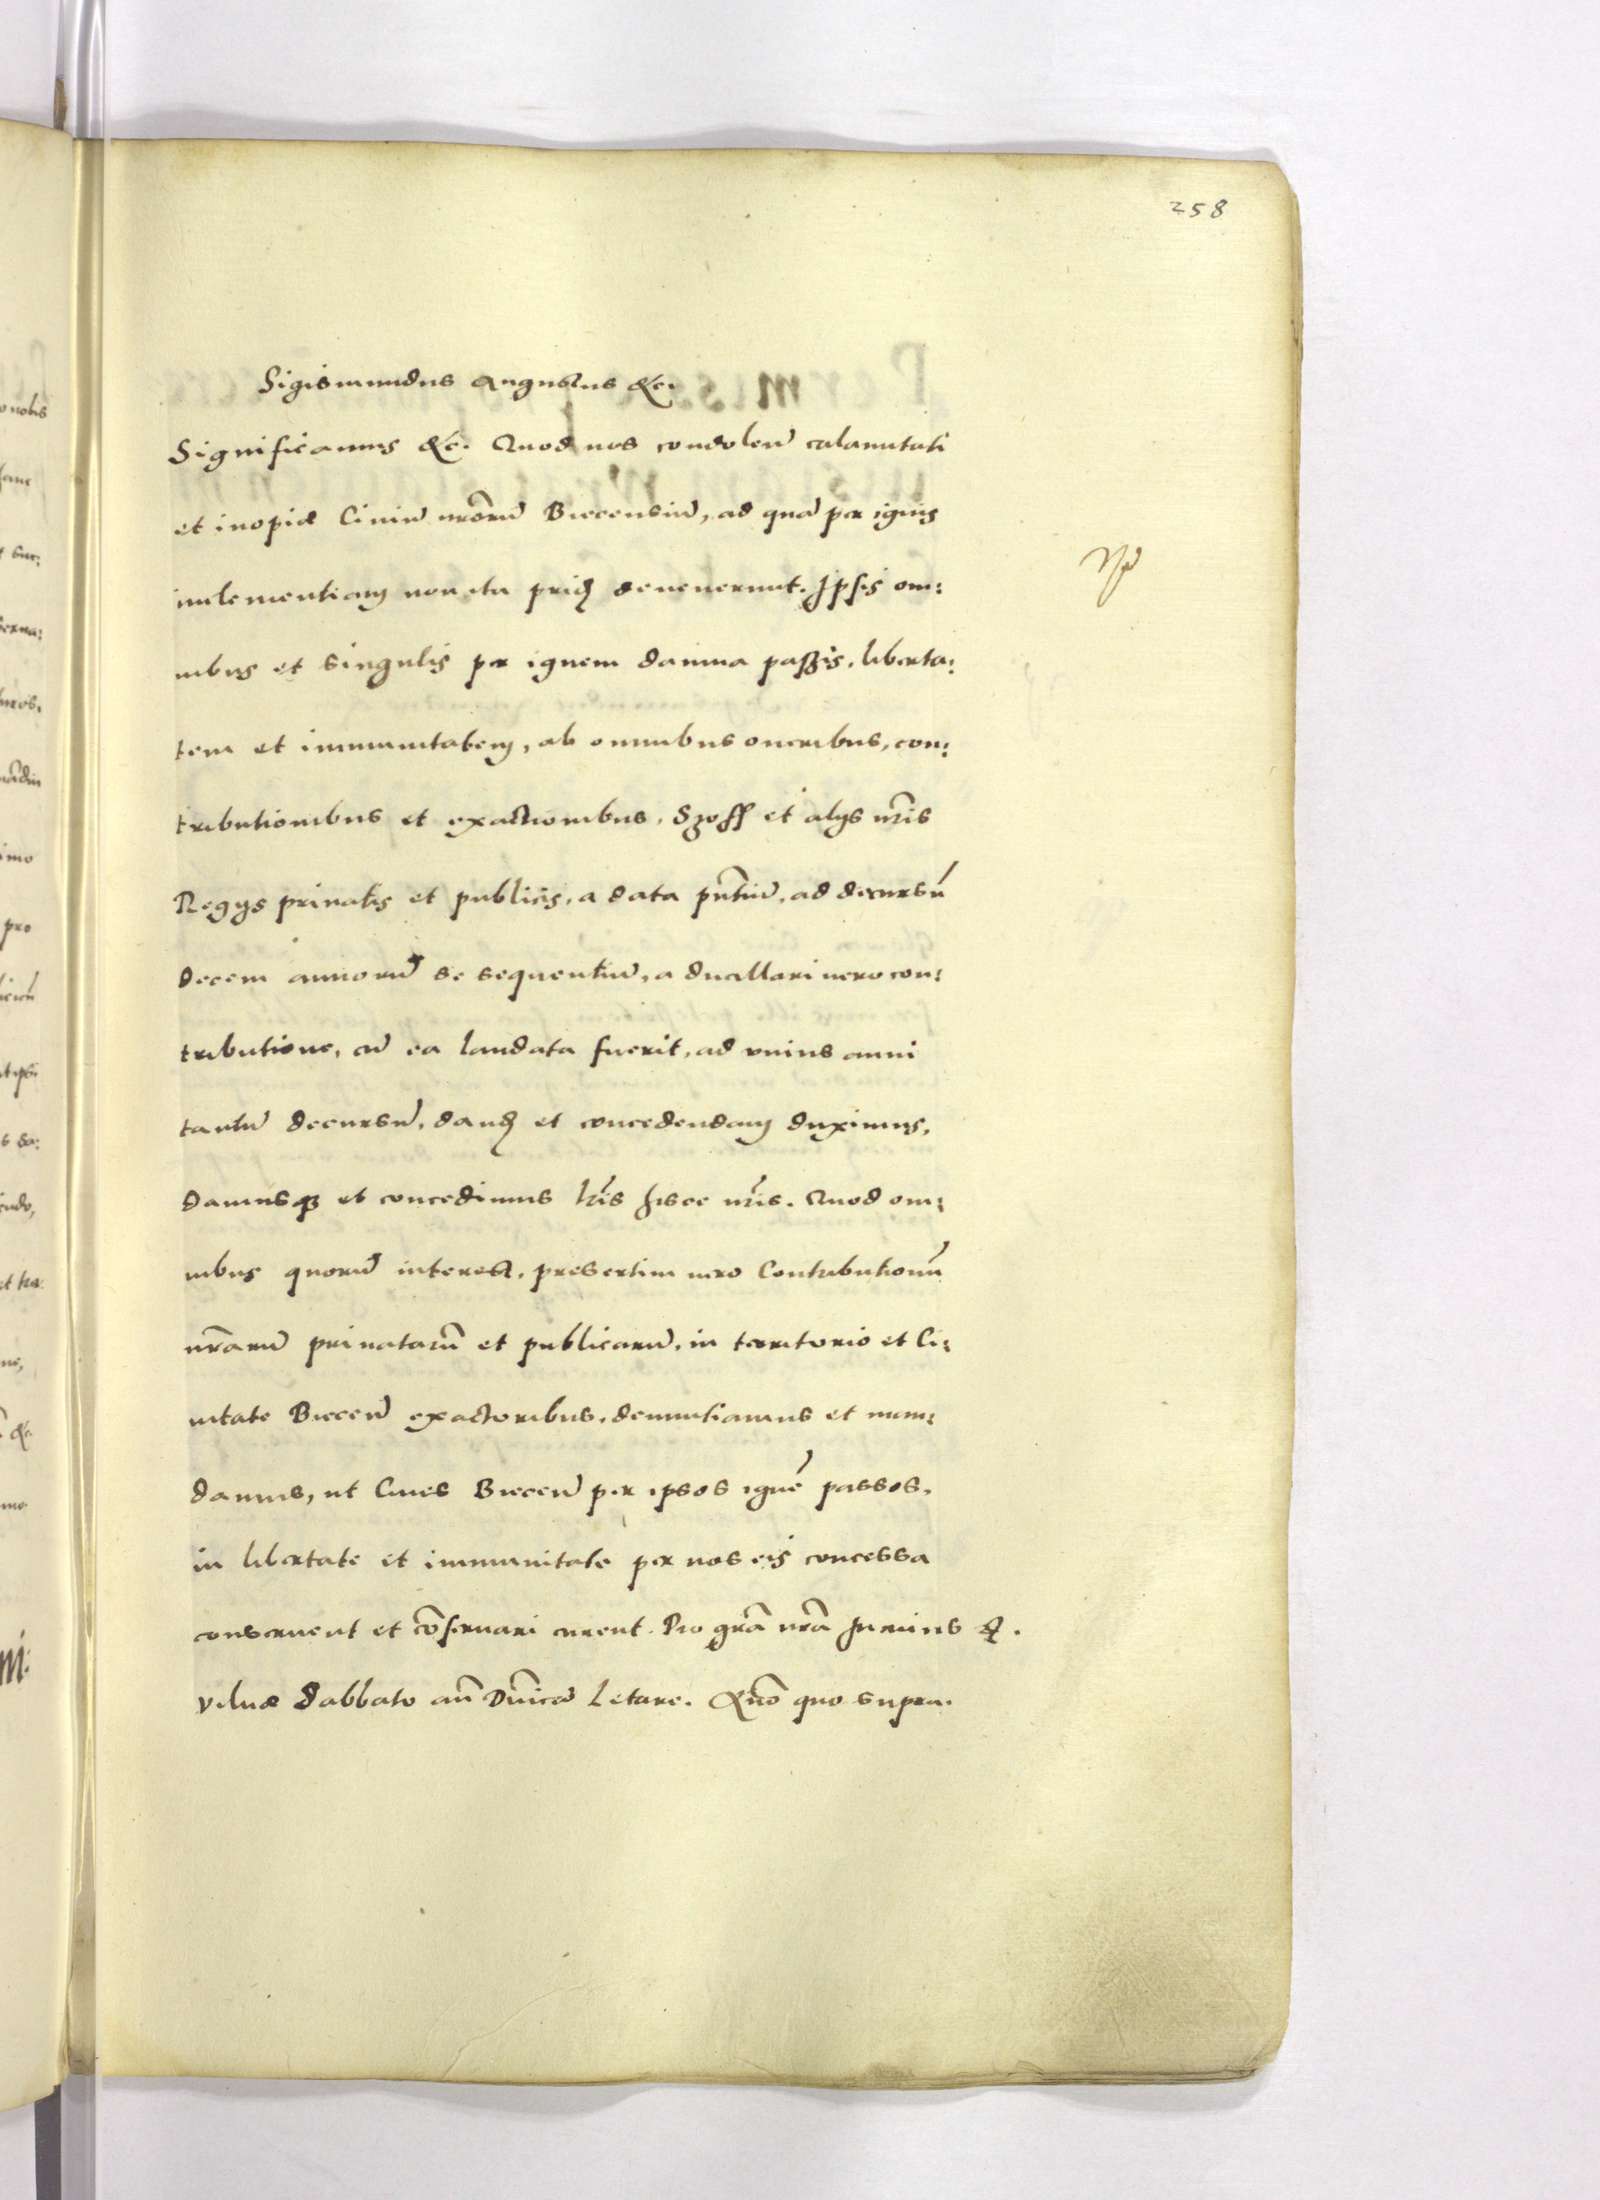 258
Sigismundus Augustus &c.
Significamus &c. Quod nos condoleñ calamitati
et inopiæ Ciuiũ nrõrũ Biecensiũ, ad quã per ignis
inclementiam non ita prid devenerunt. Ipsis om:
nibus et singulis per ignem damna passis, liberta:
tem et immunitatem, ab omnibus oneribus, con:
tributionibus et exactionibus, Szoss et alijs nr̃is
Regijs priuatis et publicis, a data pñtiũ, ad decursũ
decem annorũ se sequentiũ, a ducillari uero con:
tributione, cũ ea laudata fuerit, ad vnius anni
tantũ decursũ, dand et concedendam duximus,
damusq3 et concedimus lr̃is hisce nr̃is. Quod om:
nibus quorũ interest, presertim uero Contributionũ
nr̃arũ priuatarũ et publicarũ, in territorio et Ci:
uitate Bieceñ exactoribus, denuntiamus et man:
damus, ut Ciues Bieceñ per ipsos ignẽ passos,
in libertate et immunitate per nos eis concessa
conseruent et cõseruari curent. Pro grã nrã facturus &.
Vilnæ Sabbato añ Dñicã Letare. Anõ quo supra.